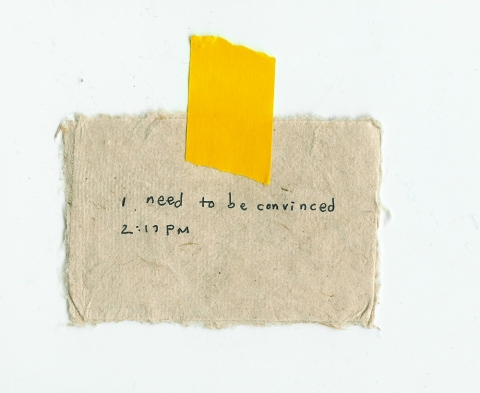 I need to be convinced
2:17 PM